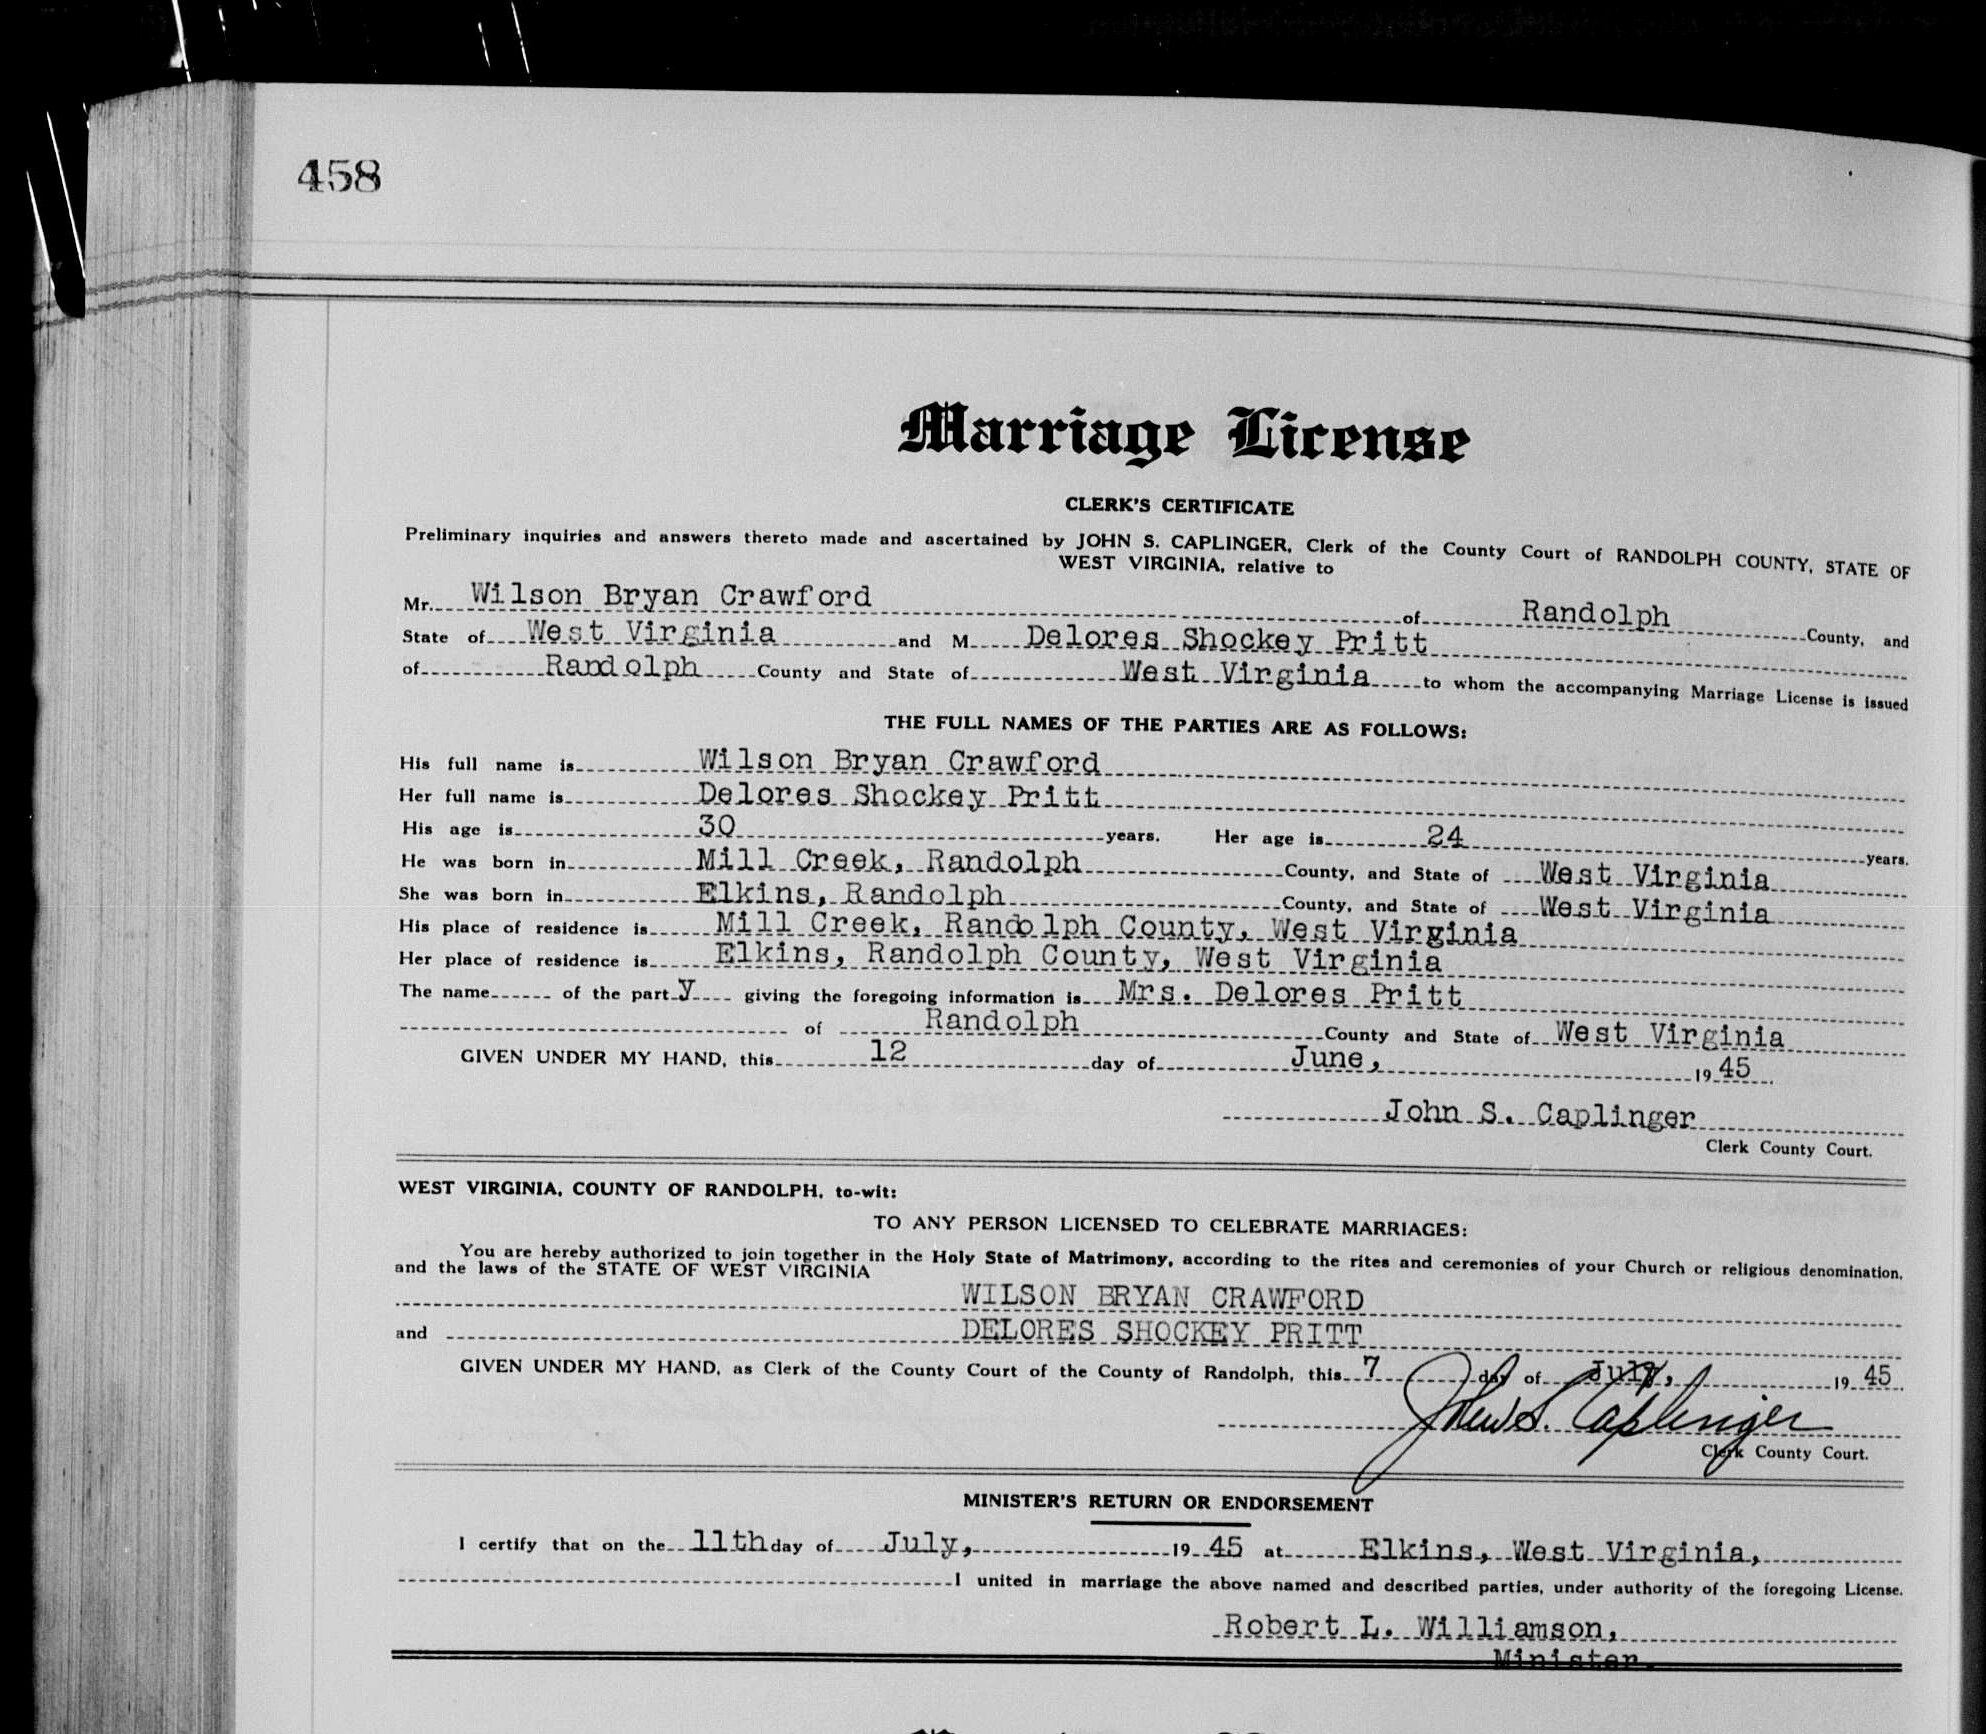 458
Marriage License
CLERK'S CERTIFICATE
Preliminary inquiries and answers thereto made and ascertained by JOHN S. CAPLINGER, Clerk of the County Court of RANDOLPH COUNTY, STATE OF
WEST VIRGINIA, relative to
Mr. Wilson Bryan Crawford of Randolph County, and
State of West Virginia and M Delores Shockey Pritt
of Randolph County and State of West Virginia to whom the accompanying Marriage License is issued
THE FULL NAMES OF THE PARTIES ARE AS FOLLOWS:
His full name is Wilson Bryan Crawford
Her full name is Delores Shockey Pritt
His age is 30 years. Her age is 24 years.
He was born in Mill Creek, Randolph County, and State of West Virginia
She was born in Elkins, Randolph County, and State of West Virginia
His place of residence is Mill Creek, Randolph County, West Virginia
Her place of residence is Elkins, Randolph County, West Virginia
The name of the party giving the foregoing information is Mrs. Delores Pritt
of Randolph County and State of West Virginia
GIVEN UNDER MY HAND, this 12 day of June, 1945
John S. Caplinger
Clerk County Court.
WEST VIRGINIA, COUNTY OF RANDOLPH, to-wit:
TO ANY PERSON LICENSED TO CELEBRATE MARRIAGES:
You are hereby authorized to join together in the Holy State of Matrimony, according to the rites and ceremonies of your Church or religious denomination,
and the laws of the STATE OF WEST VIRGINIA
WILSON BRYAN CRAWFORD
and DELORES SHOCKEY PRITT
GIVEN UNDER MY HAND, as Clerk of the County Court of the County of Randolph, this 7 day of July, 1945
John S. Caplinger
Clerk County Court.
MINISTER'S RETURN OR ENDORSEMENT
I certify that on the 11th day of July, 1945 at Elkins, West Virginia,
I united in marriage the above named and described parties, under authority of the foregoing License.
Robert L. Williamson,
Minister.